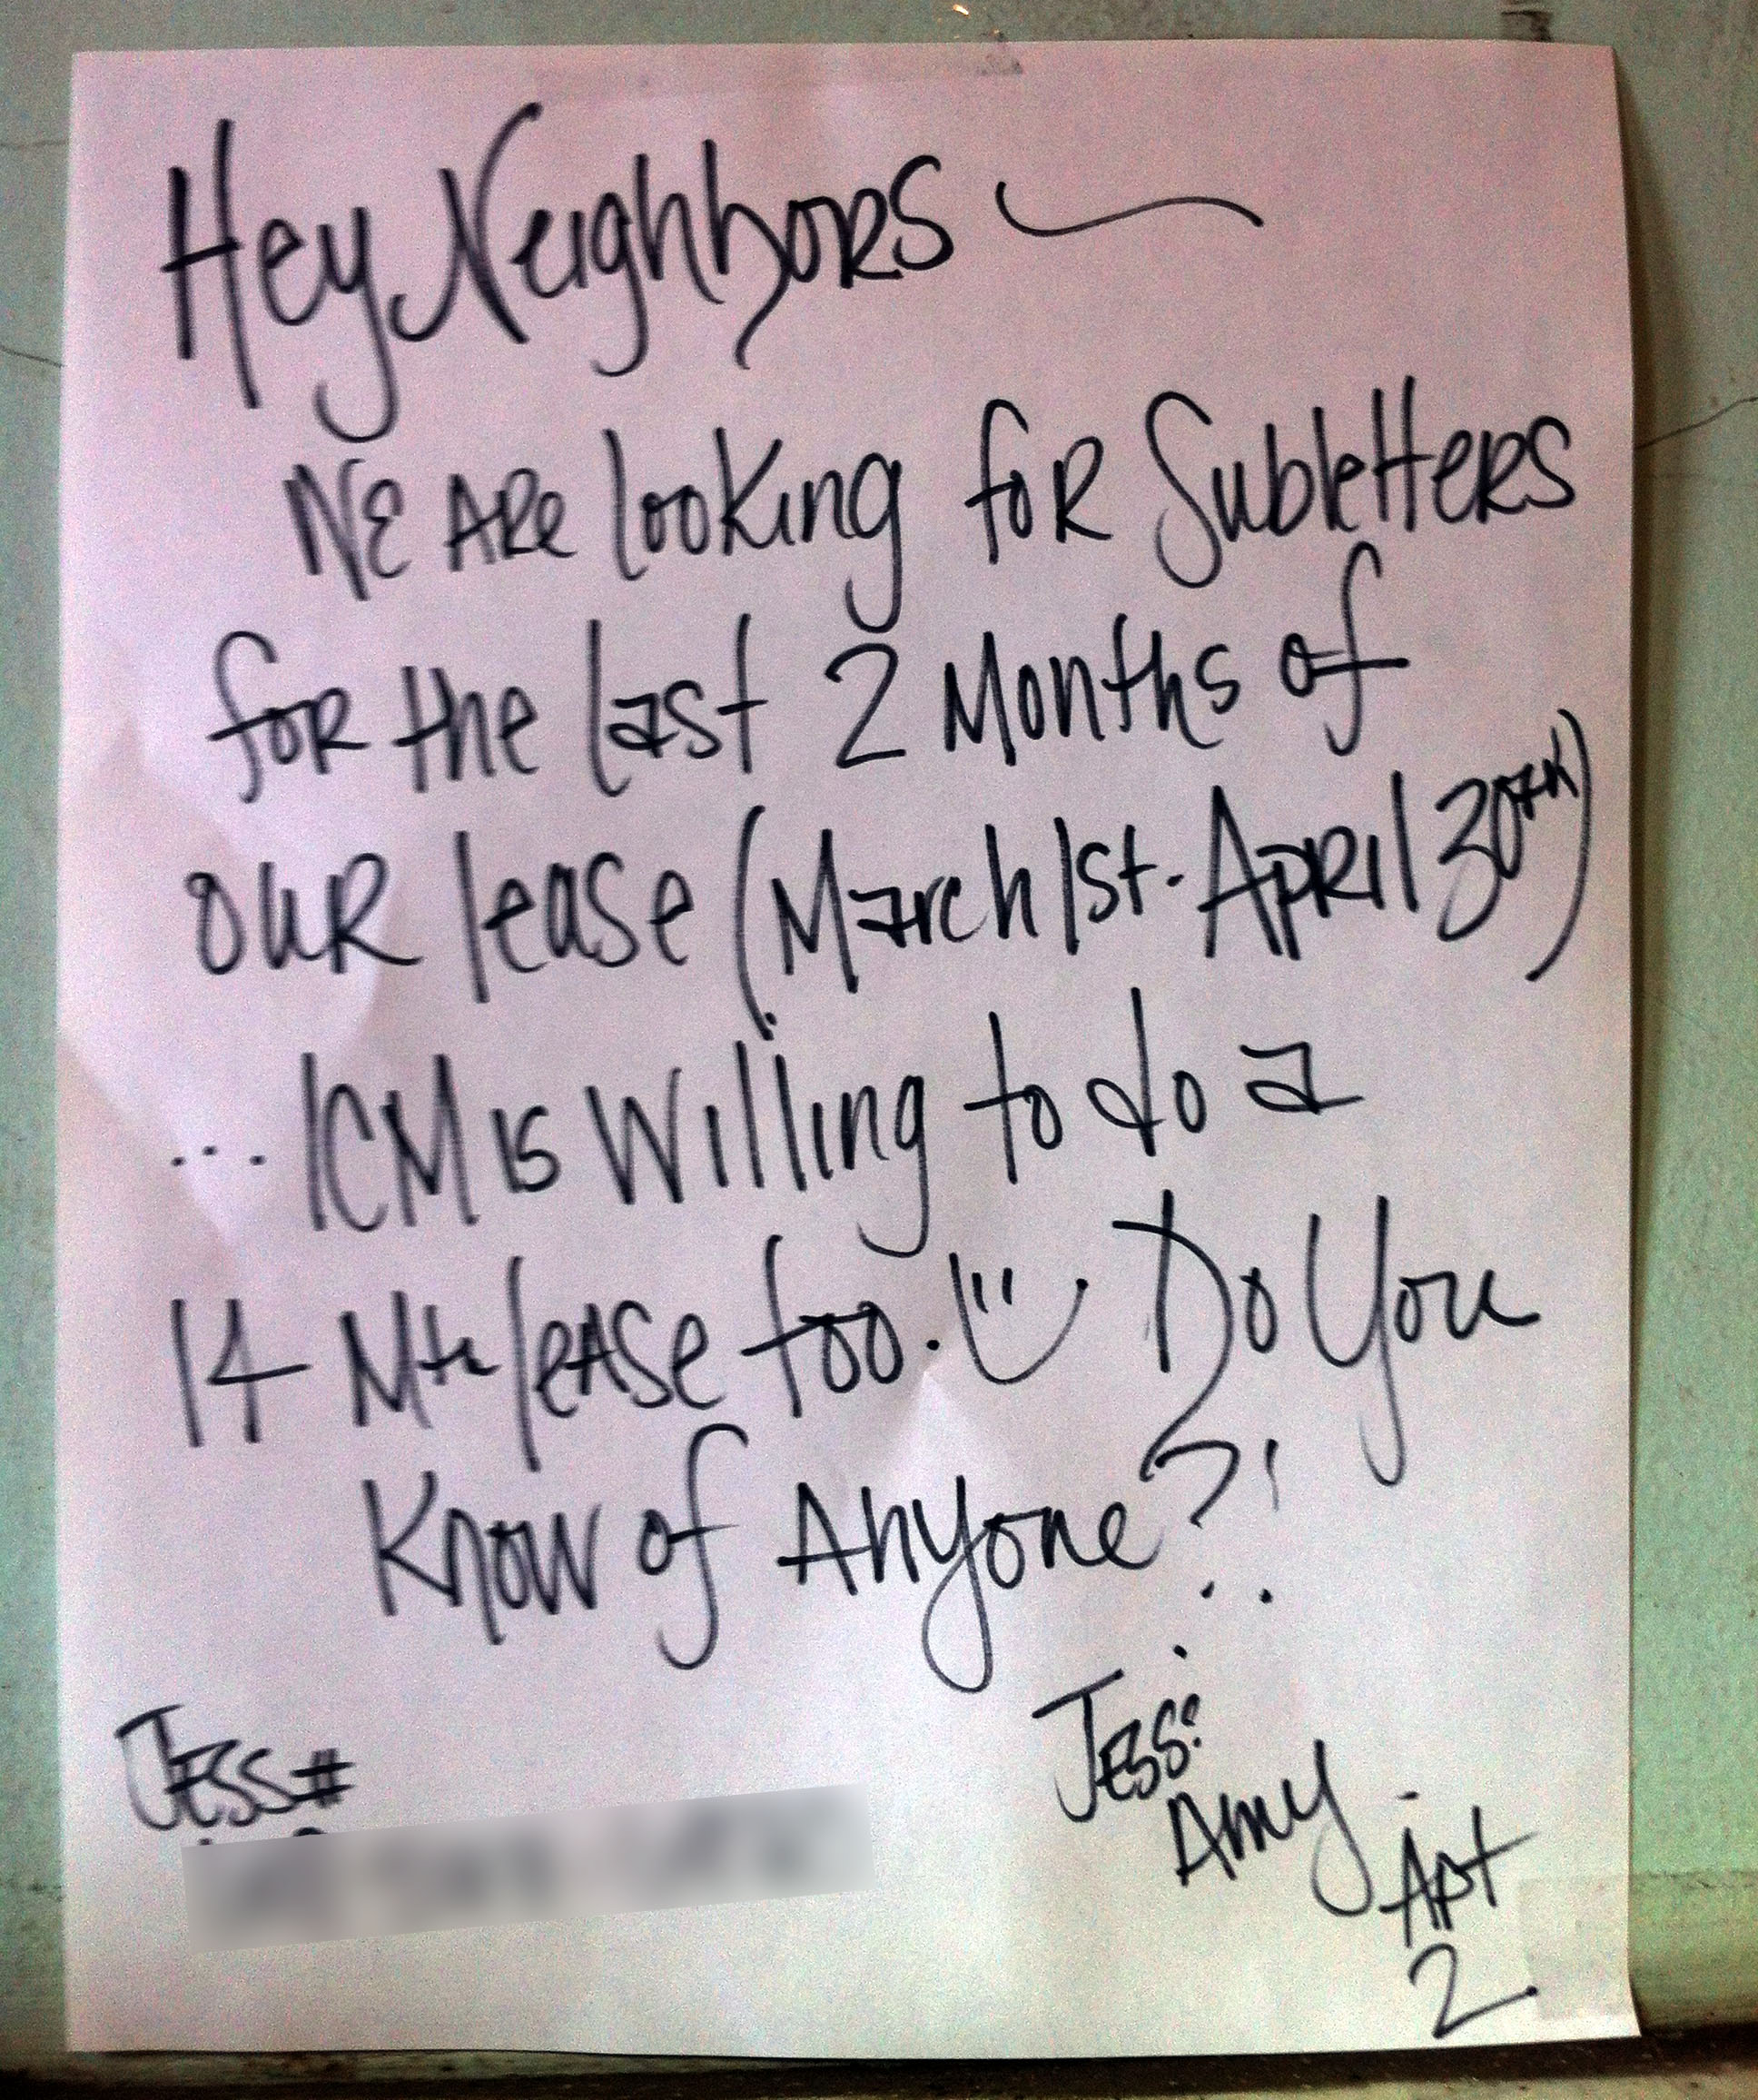 Hey Neighbors
We are looking for Subletters
for the last 2 Months of
our lease (March 1st - April 30th)
... ICM is willing to do a
14 Mth lease too. Do You
Know of Anyone?!
Jess #
Jess:
Amy -
Apt
2